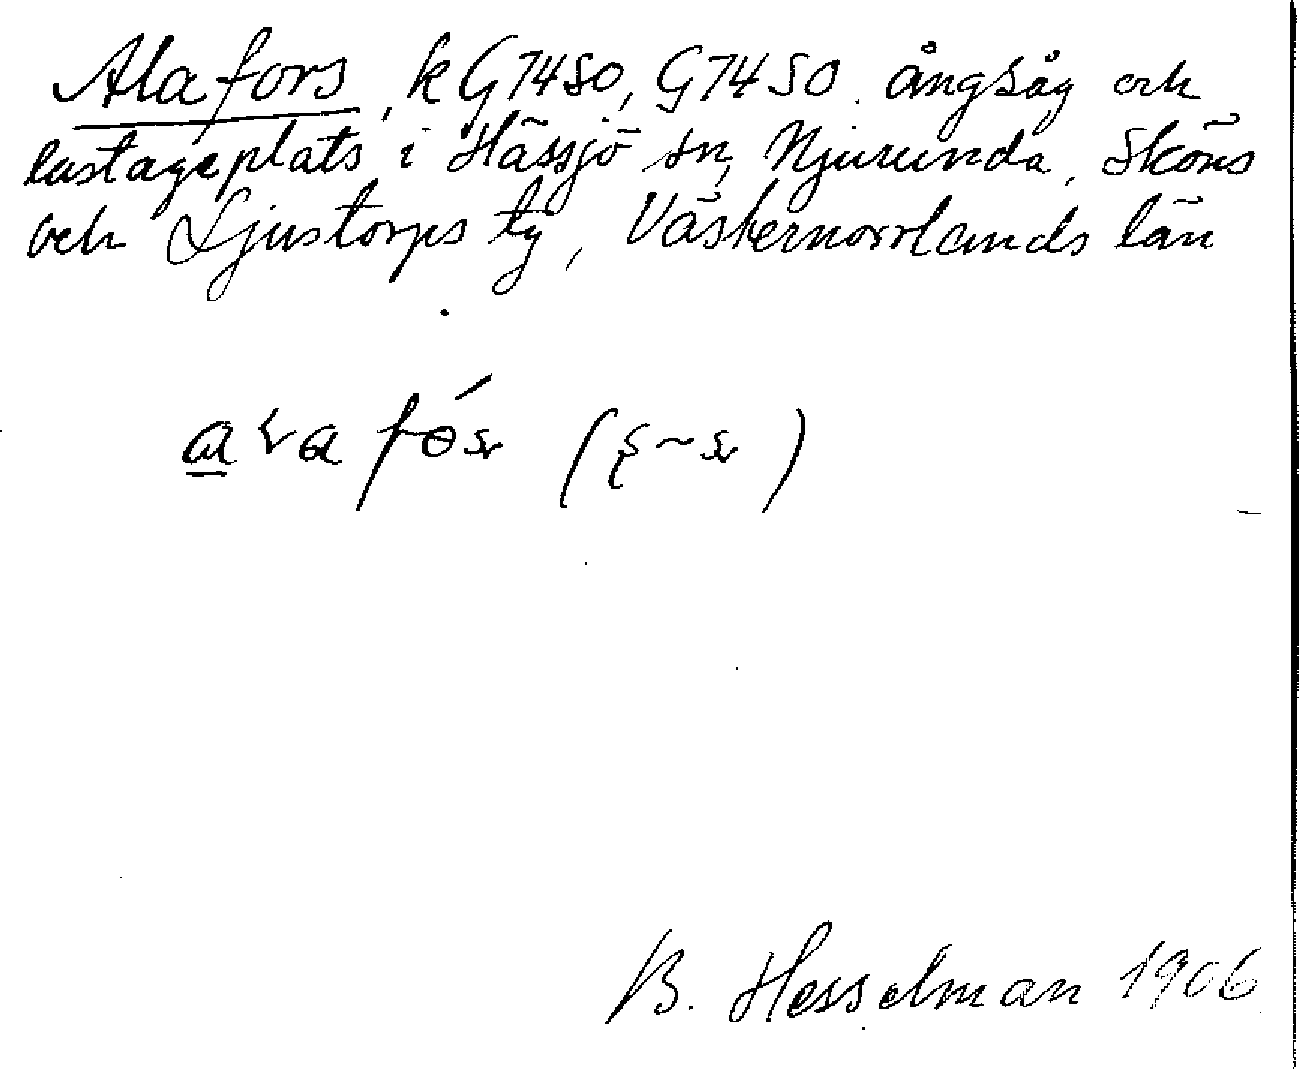 Alafors, kG7450, G7450. ångsåg och
lastageplats i Hässjö sn, Njurunda, Sköns
och Ljustorps tg, Västernorrlands län
B. Hesselman 1906